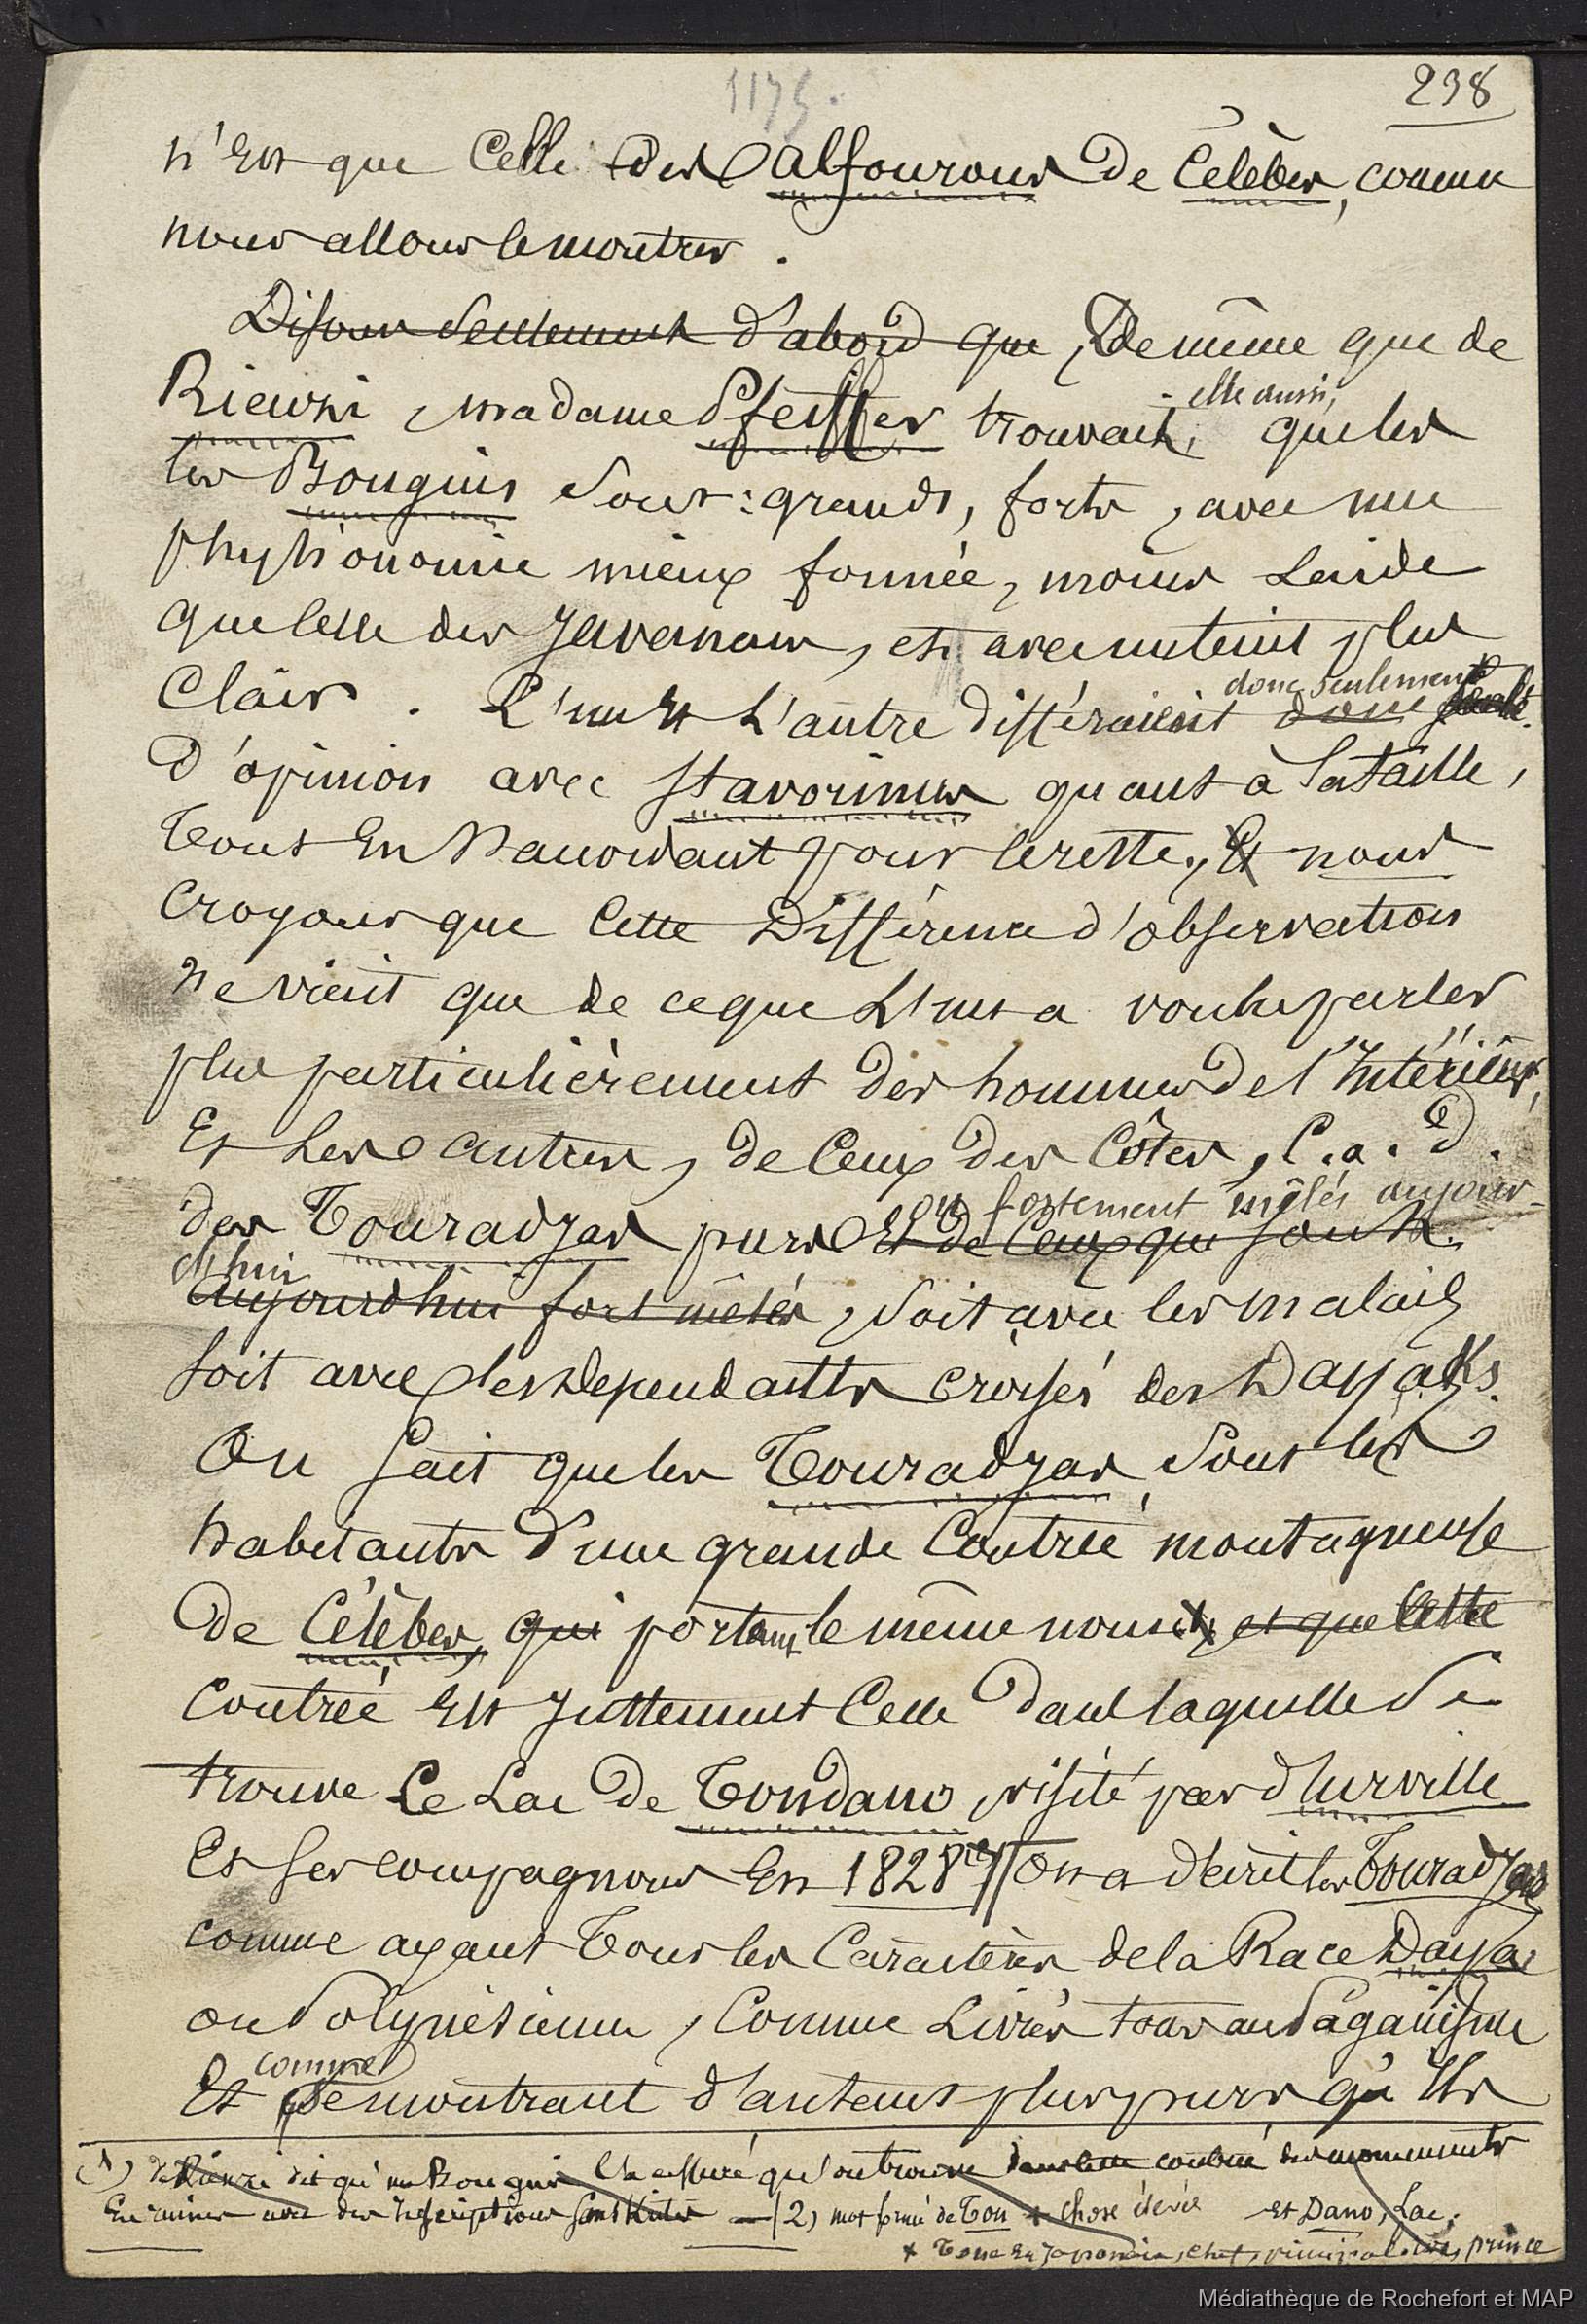 1175.
238
n'est que celle des Alfourous de Célèbes, comme
nous allons le montrer.
Disons seulement d'abord que, De même que de
Rienzi, madame Pfeiffer trouvait, - elle aussi, que les
les Bouguis sont: grands, forts, avec une
physionomie mieux formée, moins laide
que celle des Javanais, et avec un teint plus
clair. L'un et L'autre différaient donc seulemt. donc seulement
d'opinion avec Stavorinus quant à la taille,
tout en s'accordant pour le reste, Et nous
croyons que cette Différence d'observation
ne vient que de ce que L'un a voulu parler
plus particulièrement des hommes de l'Intérieur,
Et Les autres, de Ceux des Côtes, C.a.d.
des Touradjas purs Et de Ceux qui sont ou fortement mêlés aujour-
d'hui Aujourd'hui fort mêlés, soit avec les malais
soit avec les descendants croisés des Dayaks.
On sait que les Touradjas sont les
habitants d'une grande Contrée montagneuse
de Célèbes, qui portant le même nom, et que cette
contrée Est justement Celle dans laquelle se
trouve Le Lac de Tondano, visité par d'Urville
Et ses compagnons En 1828 On a décrit les Touradjas
comme ayant tous les Caractères de la Race Daya
ou Polynésienne, Comme Livrés tous au Paganisme
Et comme se montrant d'autant plus purs qu'Ils
(1) de Rienzi dit qu'un Bouguis l'a assuré qu'on trouve dans cette contrée des monuments
En ruines avec des Inscriptions Sanskrites — (2) mot formé de Ton + chose élevée et Dano, Lac.
+ en Japonais, chef, principal, prince
Médiathèque de Rochefort et MAP